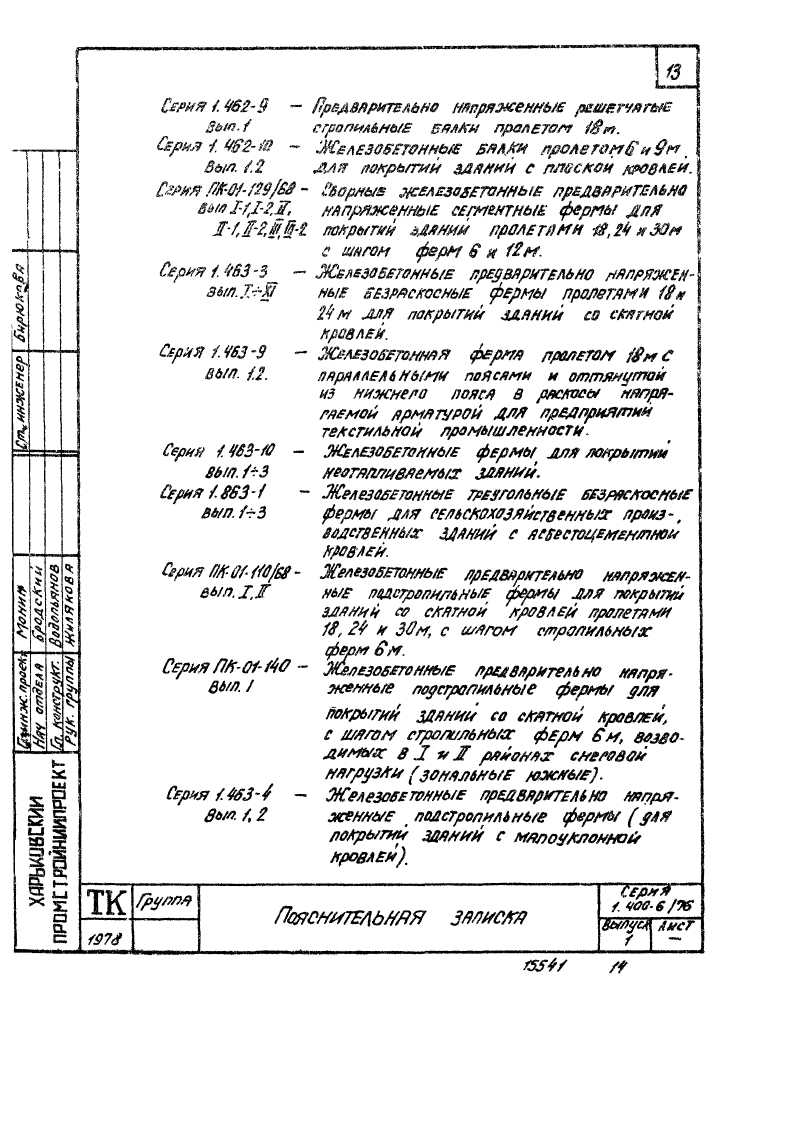 13
Серия 1.462-9 — Предварительно напряженные решетчатые
Вып.1 стропильные балки пролетом 18м.
Серия 1.462-10 — Железобетонные балки пролетом 6 и 9м
Вып. 1.2 для покрытий зданий с плоской кровлей.
Серия ПК-01-129/68 — Сборные железобетонные предварительно
Вып I-1, I-2, II, напряженные сегментные фермы для
II-1, II-2, III, III-2 покрытий зданий пролетами 18, 24 и 30м
с шагом ферм 6 и 12м.
Серия 1.463-3 — Железобетонные предварительно напряжен-
Вып. I÷XI ные безраскосные фермы пролетами 18 и
24 м для покрытий зданий со скатной
кровлей.
Серия 1.463-9 — Железобетонная ферма пролетом 18м с
Вып. 1.2. параллельными поясами и оттянутой
из нижнего пояса в раскосы напря-
гаемой арматурой для предприятий
текстильной промышленности.
Серия 1.463-10 — Железобетонные фермы для покрытий
Вып. 1÷3 неотапливаемых зданий.
Серия 1.863-1 — Железобетонные треугольные безраскосные
Вып. 1÷3 фермы для сельскохозяйственных произ-
водственных зданий с асбестоцементной
кровлей.
Серия ПК-01-110/68 - Железобетонные предварительно напряжен-
вып. I, II ные подстропильные фермы для покрытий
зданий со скатной кровлей пролетами
18, 24 и 30м, с шагом стропильных
ферм 6м.
Серия ПК-01-140 — Железобетонные предварительно напря-
Вып. 1 женные подстропильные фермы для
покрытий зданий со скатной кровлей,
с шагом стропильных ферм 6м, возво-
димых в I и II районах снеговой
нагрузки (зональные южные).
Серия 1.463-4 — Железобетонные предварительно напря-
Вып. 1, 2 женные подстропильные фермы (для
покрытий зданий с малоуклонной
кровлей).
Ст. инженер Бирюкова
Гл.инж.проект Монин
Нач отдела Бродский
Гл. конструкт. Водопьянов
Рук. группы Жилякова
ХАРЬКОВСКИЙ
ПРОМСТРОЙНИИПРОЕКТ
ТК Группа
1978
Пояснительная записка
Серия
1.400-6/76
Выпуск Лист
1 —
15541 14